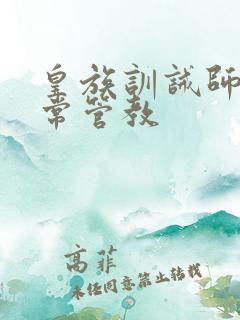 皇族訓誡師
常管教
高菲
未经同意禁止转载